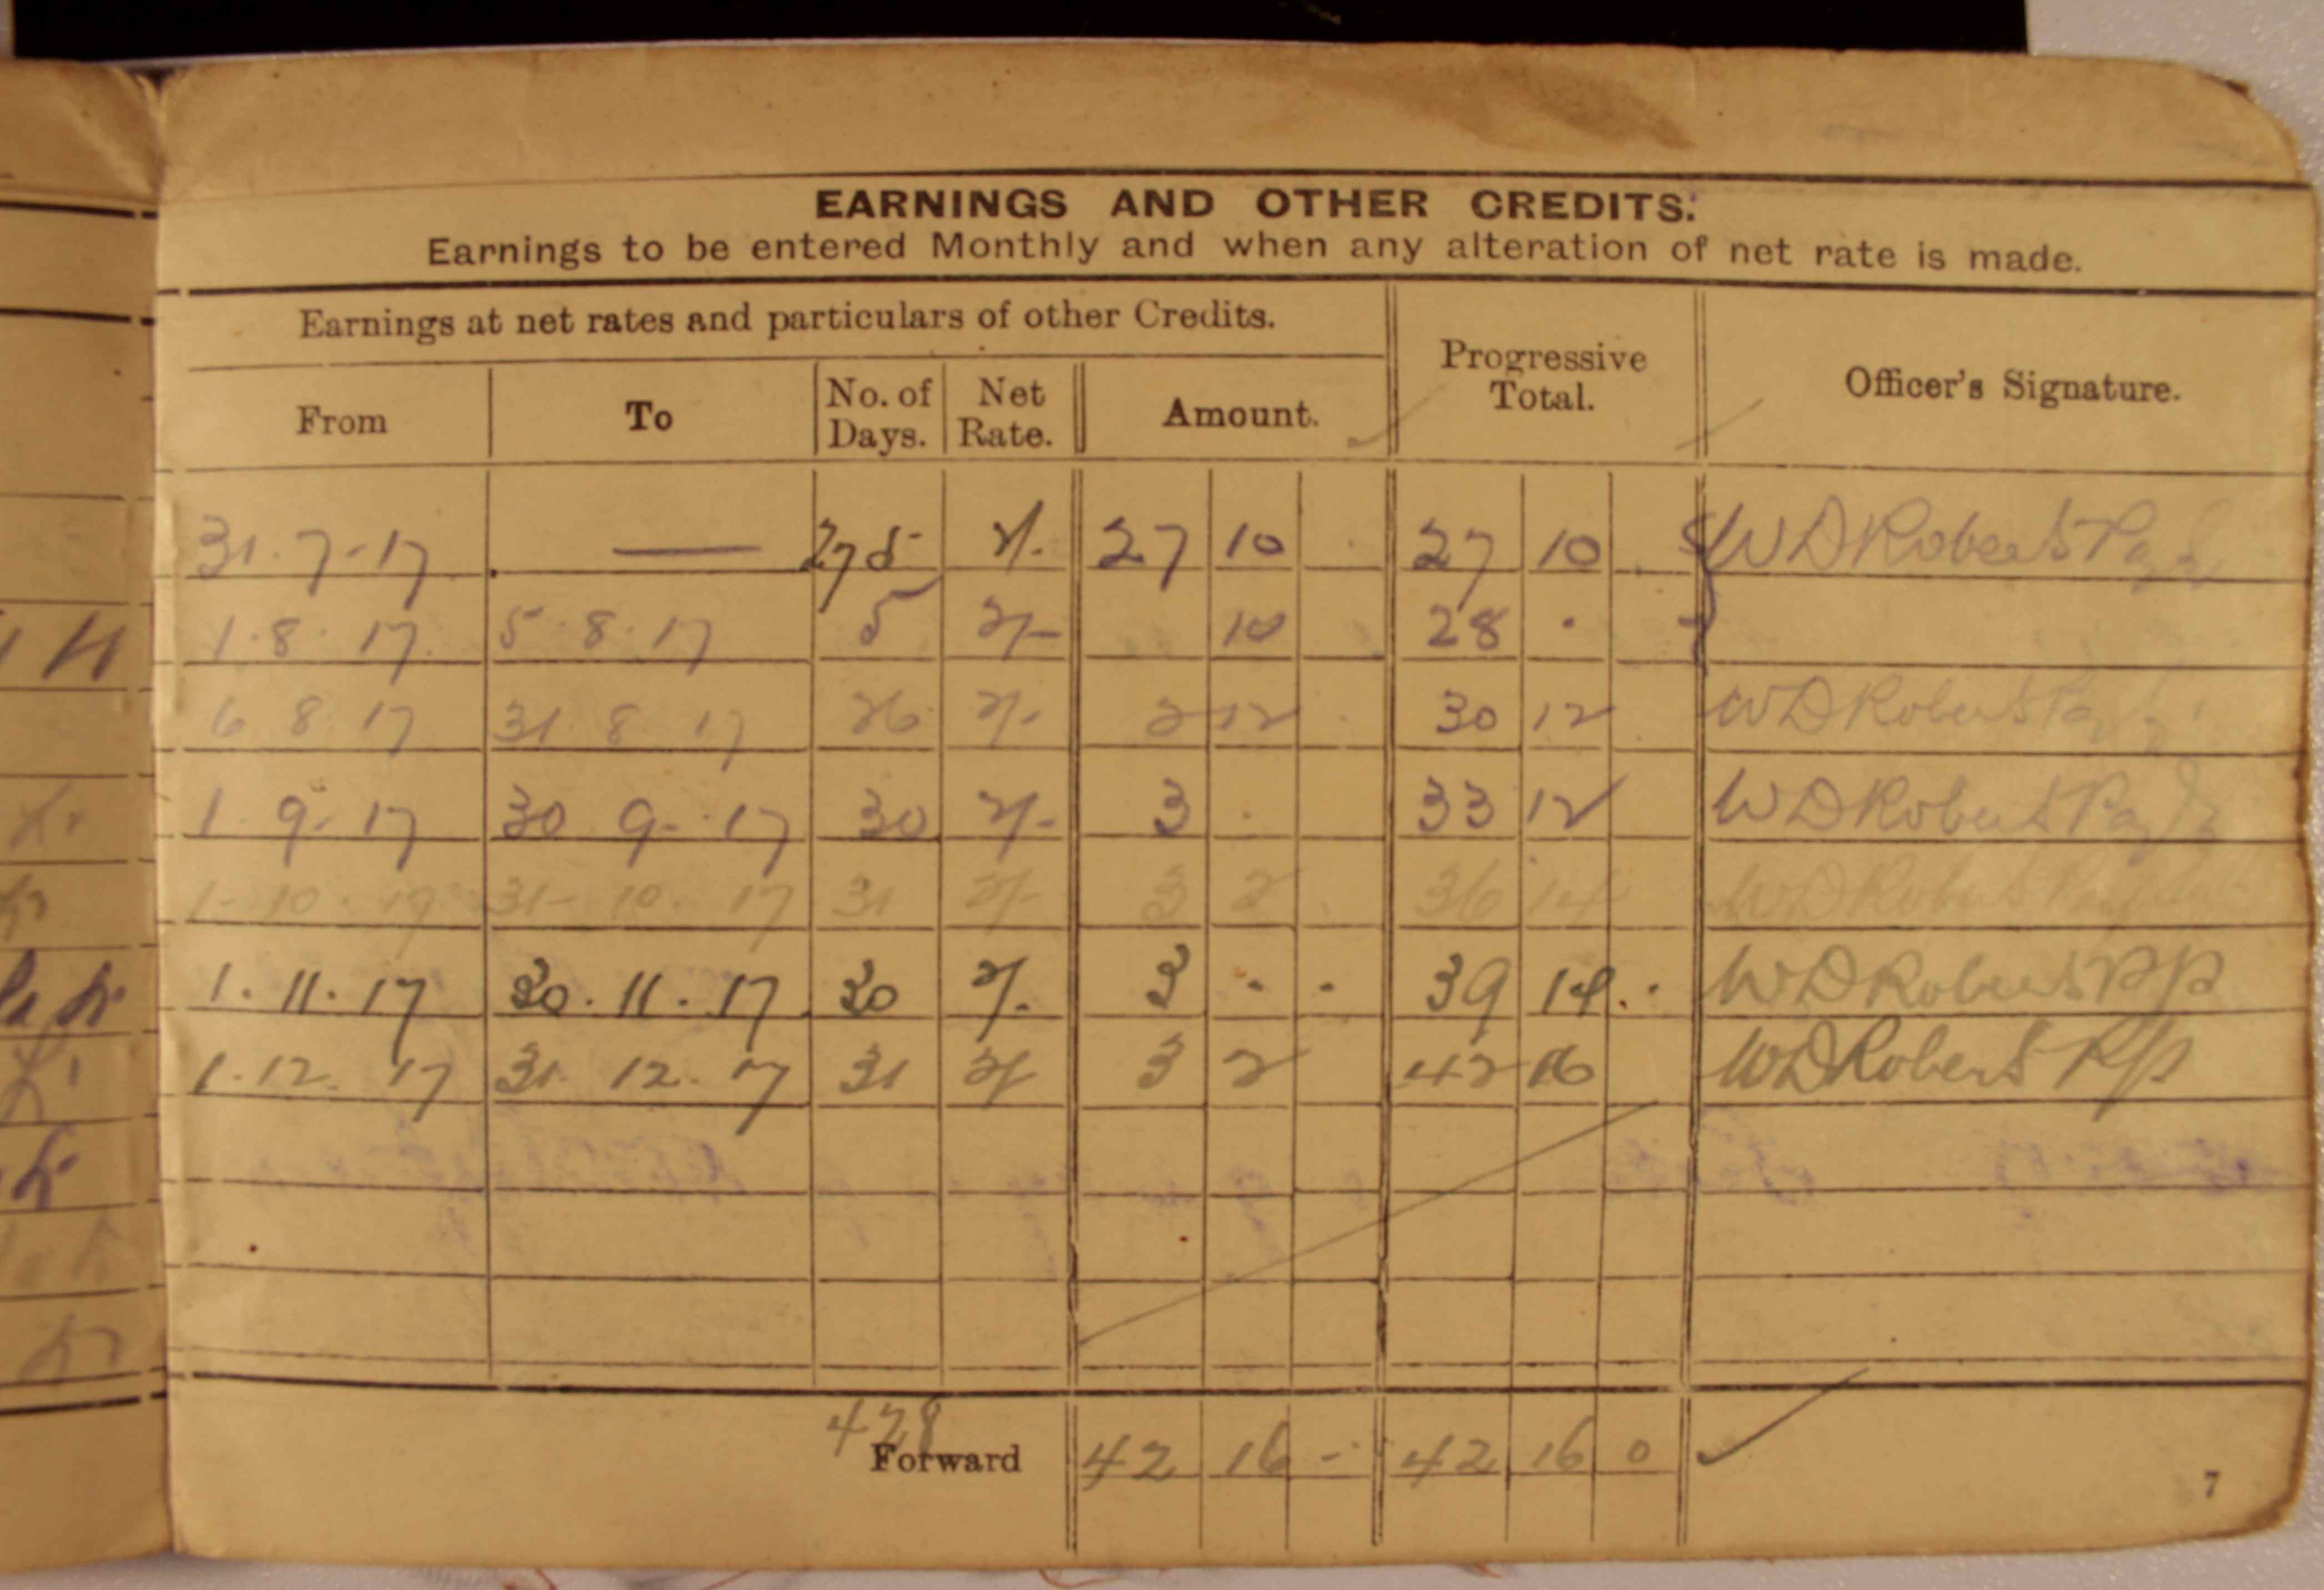 EARNINGS AND OTHER CREDITS.
Earnings to be entered Monthly and when any alteration of net rate is made.
Earnings at net rates and particulars of other Credits.
From To No. of Days. Net Rate. Amount. Progressive Total. Officer's Signature.
31.7-17 — 275 2/- 27 10 27 10 WD Roberts
1.8.17 5.8.17 5 2/- 10 28 .
6 8 17 31 8 17 26 2/- 2 12 30 12 WD Roberts
1 9- 17 30 9-.17 30 2/- 3 . 33 12 WD Roberts
1-10.17 31-10.17 31 2/- 3 2 36 14 WD Roberts
1.11.17 30.11.17 30 2/- 3 . . 39 14 . WD Roberts
1.12.17 31.12.17 31 2/ 3 2 42 16 WD Roberts
428
Forward 42 16 - 42 16 0
7